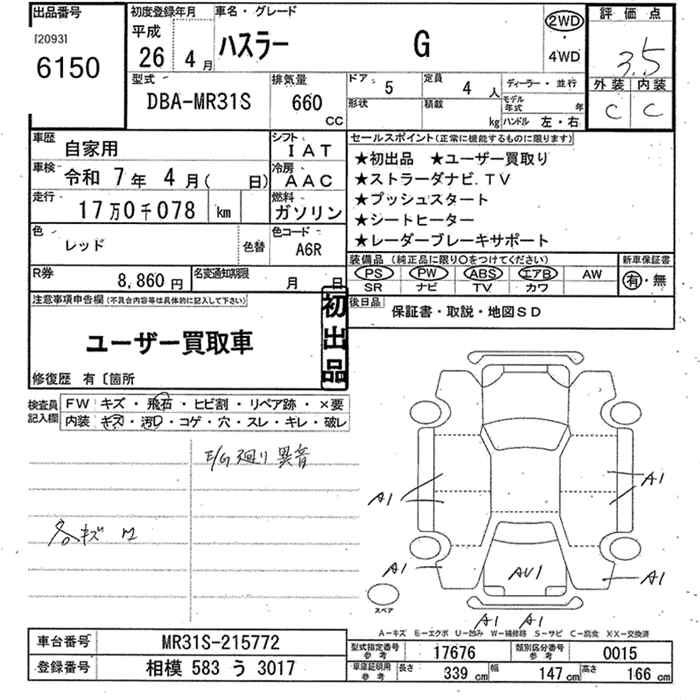 出品番号
[2093]
6150
初度登録年月
平成
26年 4月
車名・グレード
ハスラー G
2WD
・
4WD
評価点
3.5
外装 内装
C C
型式
DBA-MR31S
排気量
660 CC
ドア 5
定員 4 人
形状
積載 kg
ディーラー・並行
モデル年式 年
ハンドル 左・右
車歴 自家用
シフト IAT
車検 令和 7年 4月( 日)
冷房 AAC
走行 17万0千078 km
燃料 ガソリン
色 レッド
色替
色コード A6R
R券 8,860円
名変通知期限 月 日
セールスポイント(正常に機能するものに限ります)
★初出品 ★ユーザー買取り
★ストラーダナビ.TV
★プッシュスタート
★シートヒーター
★レーダーブレーキサポート
装備品(純正品に限り○をつけてください)
PS PW ABS エアB AW
SR ナビ TV カワ
新車保証書
有・無
後日品
保証書・取説・地図SD
注意事項申告欄(不具合内容等は具体的に記入して下さい)
ユーザー買取車
初出品
修復歴 有〔箇所
検査員記入欄
FW キズ・飛石・ヒビ割・リペア跡・×要
内装 キズ・汚レ・コゲ・穴・スレ・キレ・破レ
E/G廻り異音
各キズ
A1
A1
A1
AU1
A1
A1 A1
スペア
A-キズ E-エクボ U-凹み W-補修跡 S-サビ C-腐食 XX-交換済
車台番号 MR31S-215772
登録番号 相模 583 う 3017
型式指定番号参考 17676
類別区分番号参考 0015
車庫証明用参考
長さ 339 cm
幅 147 cm
高さ 166 cm